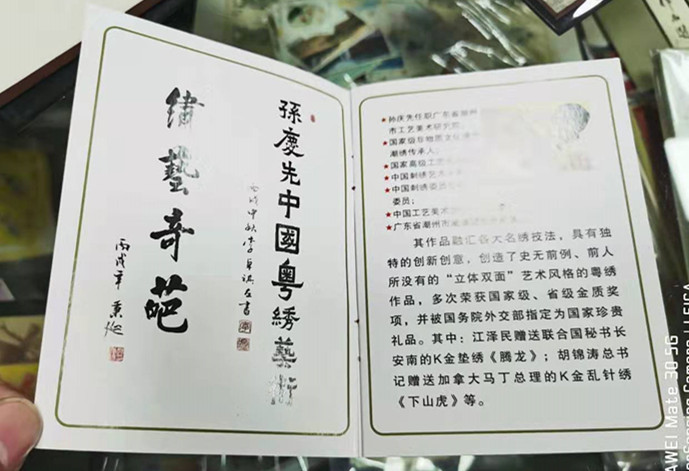 孫慶先中國粤綉藝術
丙戌中秋李
左書
繡藝奇葩
丙戌年
孙庆先任职广东省潮州
市工艺美术研究院
国家级非物质文化遗产
潮绣传承人
国家高级工艺
中国刺绣艺术
中国刺绣委员
委员；
中国工艺美术
广东省潮州市
其作品融汇各大名绣技法，具有独
特的创新创意，创造了史无前例、前人
所没有的“立体双面”艺术风格的粤绣
作品，多次荣获国家级、省级金质奖
项，并被国务院外交部指定为国家珍贵
礼品。其中：江泽民赠送联合国秘书长
安南的K金垫绣《腾龙》；胡锦涛总书
记赠送加拿大马丁总理的K金乱针绣
《下山虎》等。
AWEI Mate 30 5G